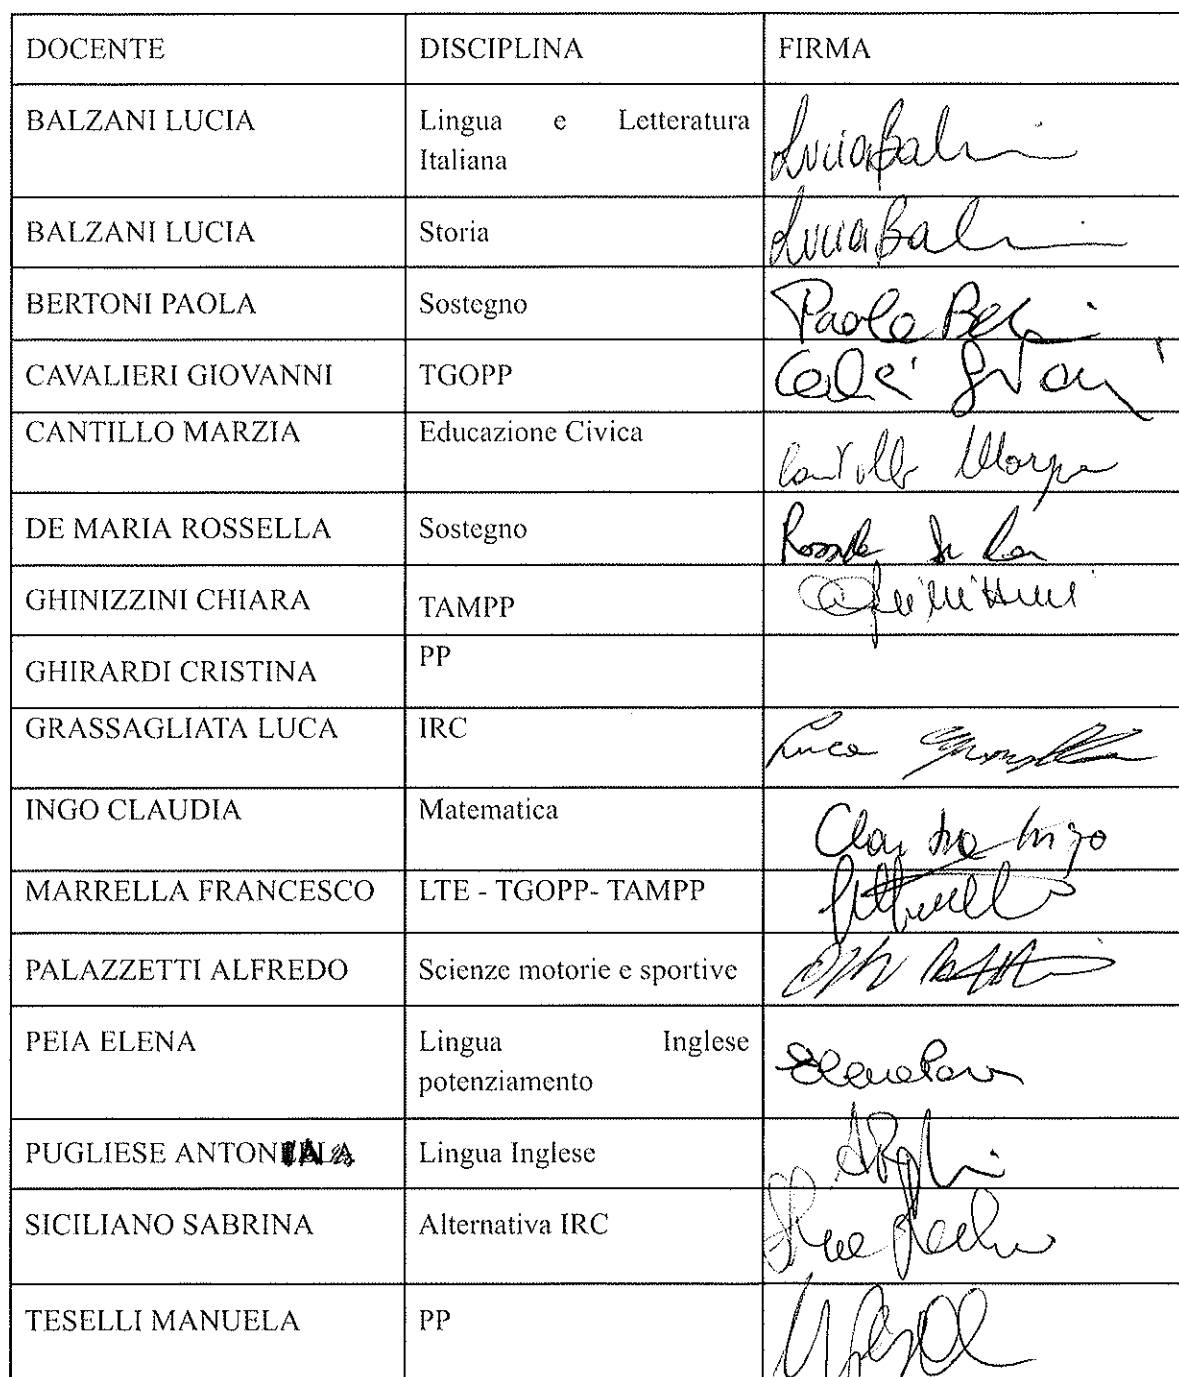 DOCENTE DISCIPLINA FIRMA
BALZANI LUCIA Lingua e Letteratura
Italiana
Lucia Bal
BALZANI LUCIA Storia Lucia Bal
BERTONI PAOLA Sostegno Paola
CAVALIERI GIOVANNI TGOPP
CANTILLO MARZIA Educazione Civica
DE MARIA ROSSELLA Sostegno
GHINIZZINI CHIARA TAMPP
GHIRARDI CRISTINA PP
GRASSAGLIATA LUCA IRC Luca
INGO CLAUDIA Matematica Claudia Ingo
MARRELLA FRANCESCO LTE - TGOPP- TAMPP
PALAZZETTI ALFREDO Scienze motorie e sportive
PEIA ELENA Lingua Inglese
potenziamento
PUGLIESE ANTONINA Lingua Inglese
SICILIANO SABRINA Alternativa IRC
TESELLI MANUELA PP